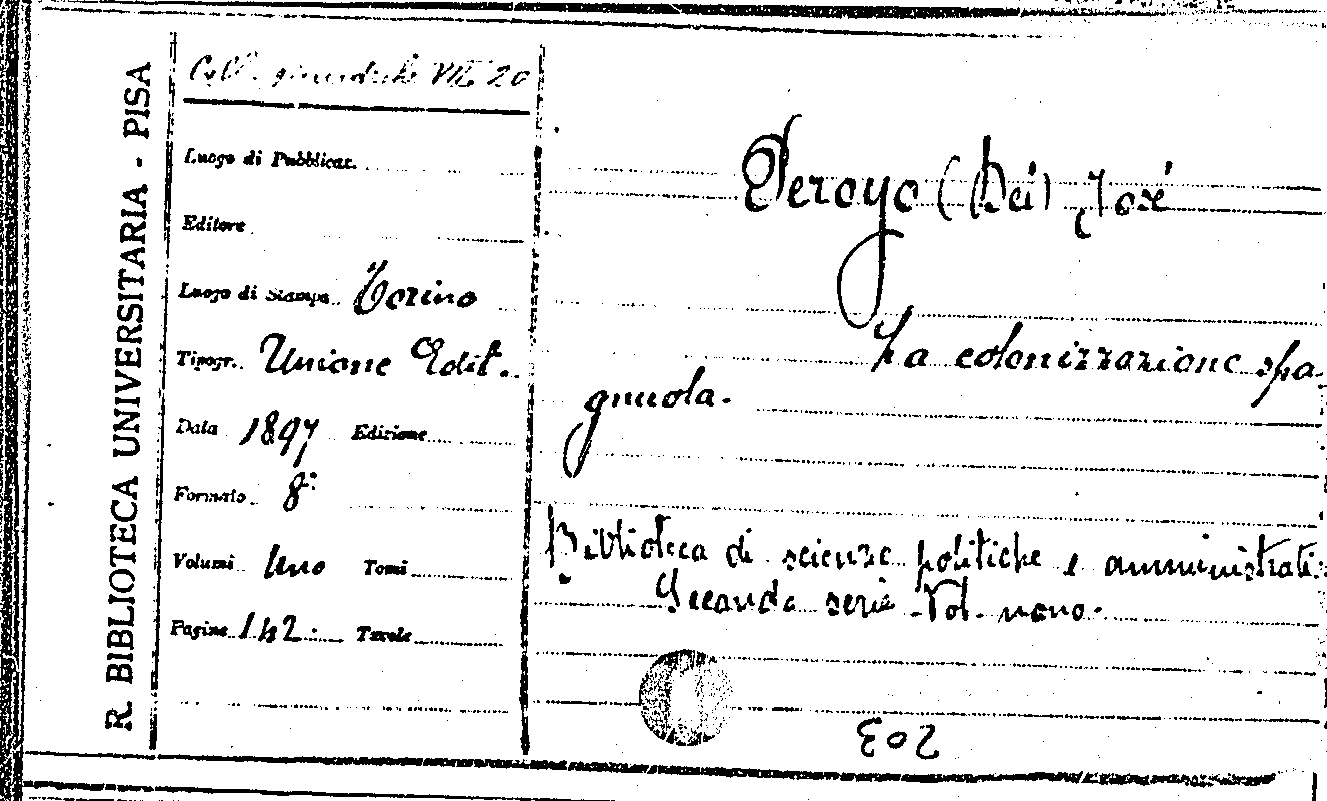 R. BIBLIOTECA UNIVERSITARIA - PISA
Coll. giuridiche VII 20
Luogo di Pubblicaz.
Editore
Luogo di Stampa Torino
Tipogr. Unione Edit.
Data 1897 Edizione
Formato 8°
Volumi Uno Tomi
Pagine 142. Tavole
Peroyo (Dei) José
La colonizzazione spa-
gnuola.
Biblioteca di scienze politiche e amministrati:
Seconda serie - Vol. nono.
203